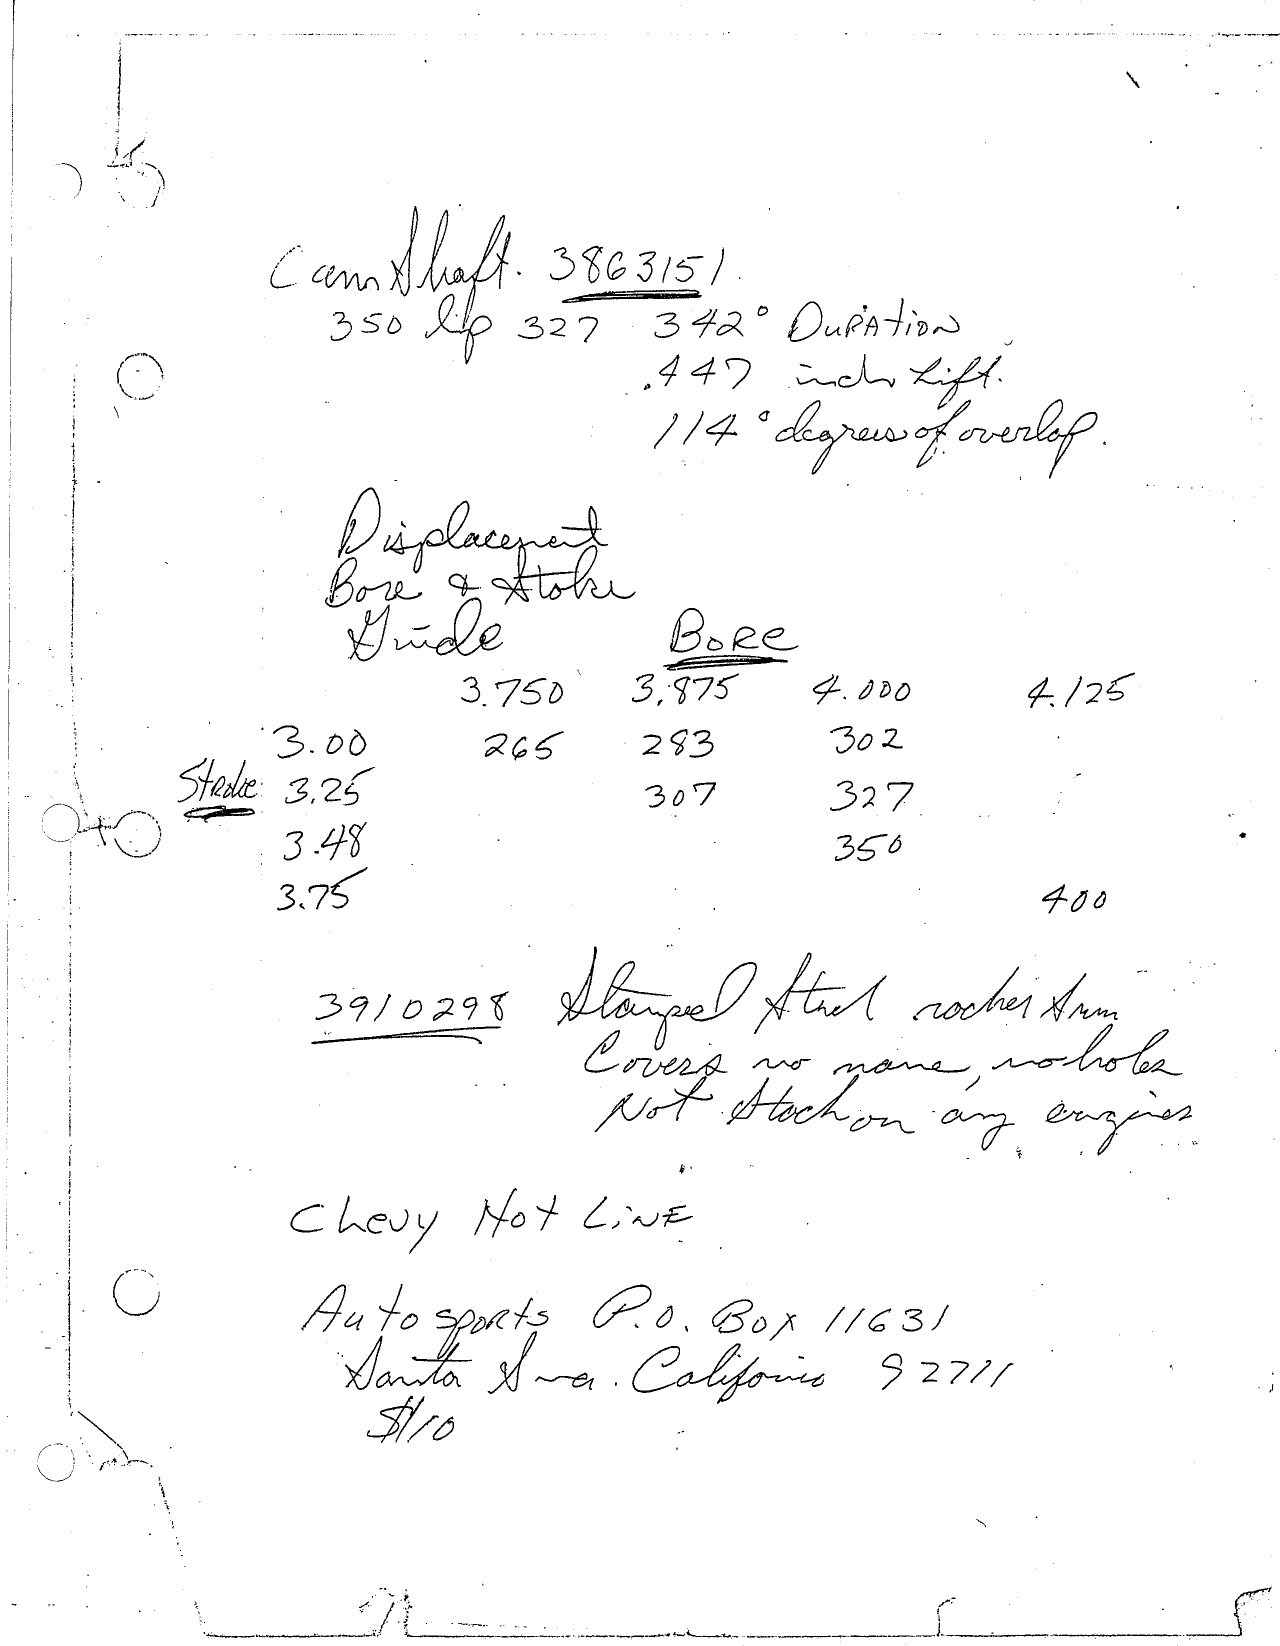 Cam Shaft. 3863151.
350 hp 327 342° Duration
.447 inch Lift.
114° degrees of overlap.
Displacement
Bore & Stoke
Guide Bore
3.750 3.875 4.000 4.125
3.00 265 283 302
Stroke 3.25 307 327
3.48 350
3.75 400
3910298 Stamped Steel rocker Arm
Covers no name, no holes
Not Stock on any engines
Chevy Hot Line
Autosports P.O. Box 11631
Santa Ana. California 92711
$110